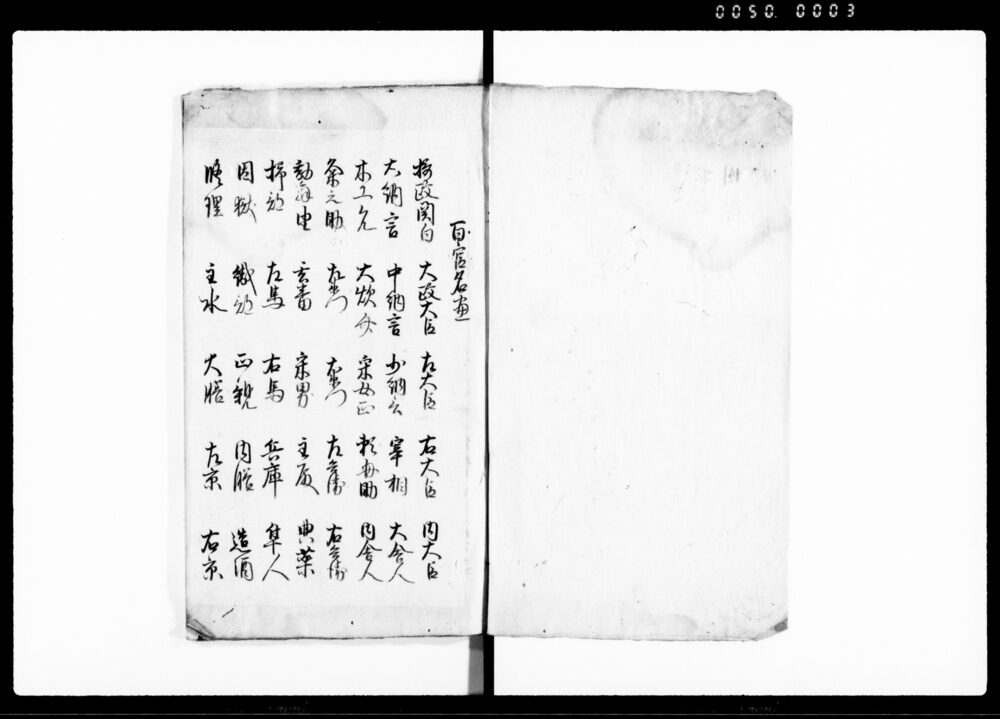 0050. 0003
百官名
摂政関白 大政大臣 左大臣 右大臣 内大臣
大納言 中納言 少納言 宰相 大舎人
木工允 大炊 采女正 助 内舎人
之助 左衛門 右衛門 左兵衛 右兵衛
勘解由 玄蕃 主殿 典薬
掃部 左馬 右馬 兵庫 隼人
囚獄 織部 正親 内膳 造酒
修理 主水 大膳 左京 右京